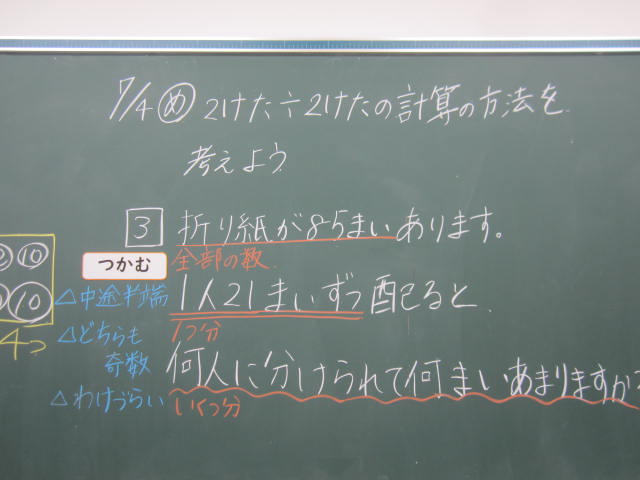 7/4 め 2けた÷2けたの計算の方法を
考えよう
3 折り紙が85まいあります。
つかむ 全部の数
△中途半端 1人21まいずつ配ると、
△どちらも 1つ分
奇数 何人に分けられて何まいあまりますか
△わけづらい いくつ分
10
10
4つ